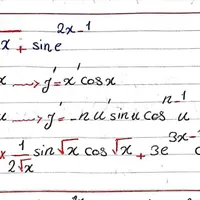 x + sin e^{2x-1}
x ⟶ y' = x' cos x
u ⟶ y' = -n u' sin u cos^{n-1} u
x \frac{1}{2\sqrt{x}} sin √x cos √x + 3e^{3x-